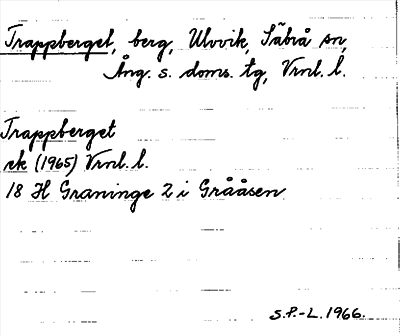 Trappberget, berg, Ulvvik, Säbrå sn,
Ång. s. doms. tg, Vrnl. l.
Trappberget
ek (1965) Vrnl. l.
18 H Graninge 2 i Grååsen
S.P.-L. 1966.